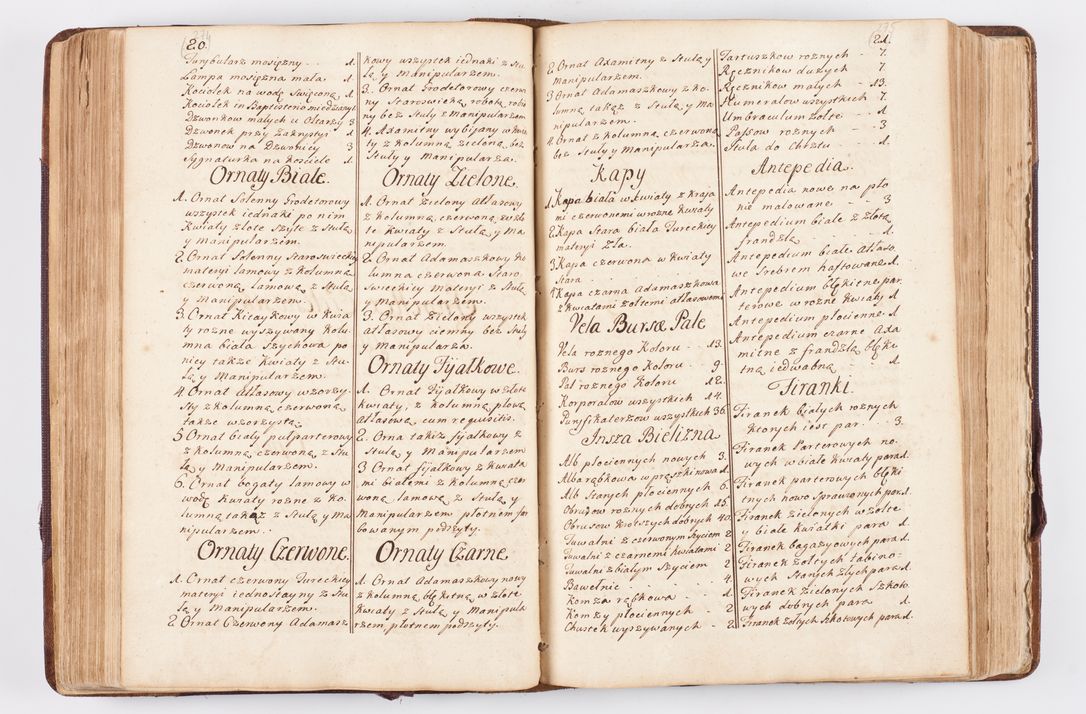 20.
Turybularz mosiężny 1.
Lampa mosiężna mała 1.
Kociołek na wodę Swięconą 1.
Kociołek in Baptisterio miedziany 1
Dzwonkow małych u Ołtarzy 3
Dzwonek przy Zakrystyi 1
Dzwonow na Dzwonicy 3
Sygnaturka na Kościele 1.
Ornaty Białe.
1. Ornat Solenny Grodetorowy
wszystek iednaki po nim
Kwiaty złote szyte z Stułą
y Manipularzem.
2. Ornat Solenny Staroswiecki
materyi lamowy z Kolumną
czerwoną lamową z Stułą
y Manipularzem.
3. Ornat Kitaykowy w kwia
ty rozne wyszywany Kolu
mna biała Szychowa po
niey także Kwiaty z Stu
łą y Manipularzem.
4. Ornat Atłasowy wzorzy
sty z kolumną czerwoną
także wzorzystą.
5 Ornat biały pułparterowy
z kolumną czerwoną, z Stu
łą y Manipularzem.
6. Ornat bogaty lamowy w
wodę Kwiaty rozne z Ko
lumną takąż z Stułą y Ma
nipularzem.
Ornaty Czerwone.
1. Ornat czerwony Turecki
materyi iednostayny z Stu
łą y Manipularzem.
2 Ornat Czerwony Adamasz
kowy wszystek iednaki z Stu
łą y Manipularzem.
3. Ornat Grodetorowy czerwo
ny Staroswieką robotą robio
ny bez Stuły z Manipularzem
4. Adamitny wybijany w kwia
ty z kolumną zieloną bez
Stuły y Manipularza.
Ornaty Zielone.
1. Ornat Zielony Atłasowy
z kolumną czerwoną, w zło
te Kwiaty z Stułą y Ma
nipularzem.
2. Ornat Adamaszkowy Ko
lumna czerwona Staro
Swieckiey Materyi z Stułą
y Manipularzem.
3. Ornat Zielony wszystek
Atłasowy ciemny bez Stuły
y Manipularza.
Ornaty Fijałkowe.
1. Ornat Fijałkowy w złote
kwiaty, z kolumną płową
Atłasową cum requisitis.
2. Orna takiż fijałkowy z
Stułą y Manipularzem
3 Ornat fijałkowy z kwiata
mi białemi z Kolumną czer
woną lamową z Stułą y
Manipularzem płotnem far
bowanym podszyty.
Ornaty Czarne
1. Ornat Adamaszkowy nowy
z kolumną błękitną w złote
Kwiaty z Stułą y Manipula
rzem płotnem podszyty.
21.
2 Ornat Adamitny z Stułą y
Manipularzem.
3 Ornat Adamaszkowy z ko
lumną takąż z Stułą y Ma
nipularzem.
4. Ornat z kolumną czerwoną
bez Stuły y Manipularza.
Kapy
1 Kapa biała w kwiaty z kraja
mi czerwonemi w rozne kwiaty
2. Kapa Stara biała Tureckiey
materyi Zła.
3 Kapa czerwona w kwiaty
Stara
4 Kapa czarna Adamaszkowa
z kwiatami żołtemi atłasowemi
Vela Bursæ Pale
Vela roznego Koloru 13.
Burs roznego Koloru 9.
Pal roznego Koloru 12.
Korporałow wszystkich 14.
Puryfikaterzow wszystkich 36.
Insza Bielizna
Alb płociennych nowych 3.
Alba rąbkowa w prążki nowa 1.
Alb Starych płociennych 6.
Obrusow roznych dobrych 15.
Obrusow gorszych dobrych 40.
Tuwalni z czerwonym szyciem 2
Tuwalni z czarnemi kwiatami 2
Tuwalni z białym szyciem 2
Bawełnic 4.
Komża rąbkowa 1.
Komży płociennych 2
Chustek wyszywanych 2.
Tarturzkow roznych 7.
Ręcznikow dużych 7
Ręcznikow małych 13.
Humerałow wszystkich 7.
Umbraculum żołte 1.
Passow roznych 3
Stuła do Chrztu 1.
Antepedia.
Antepedia nowe na pło
nie malowane 3
Antepedium białe z złotą
frandzlą 1.
Antepedium białe Atłaso
we Srebrem haftowane 1.
Antepedium błękitne par
terowe w rozne kwiaty 1.
Antepedium płocienne 1.
Antepedium czarne Ada
mitne z frandzlą błęki
tną iedwabną 1.
Firanki.
Firanek białych roznych
ktorych iest par 3.
Firanek Parterowych no
wych w białe kwiaty para 1.
Firanek parterowych błęki
tnych nowo sprawionych par 1.
Firanek zielonych w żołte
y białe kwiatki para 1.
Firanek bagazyowych para 1.
Firanek żołtych tabino-
wych Starych złych para 1.
Firanek zielonych szkoto
wych dobrych para 1.
Firanek żołtych szkotowych para 1.